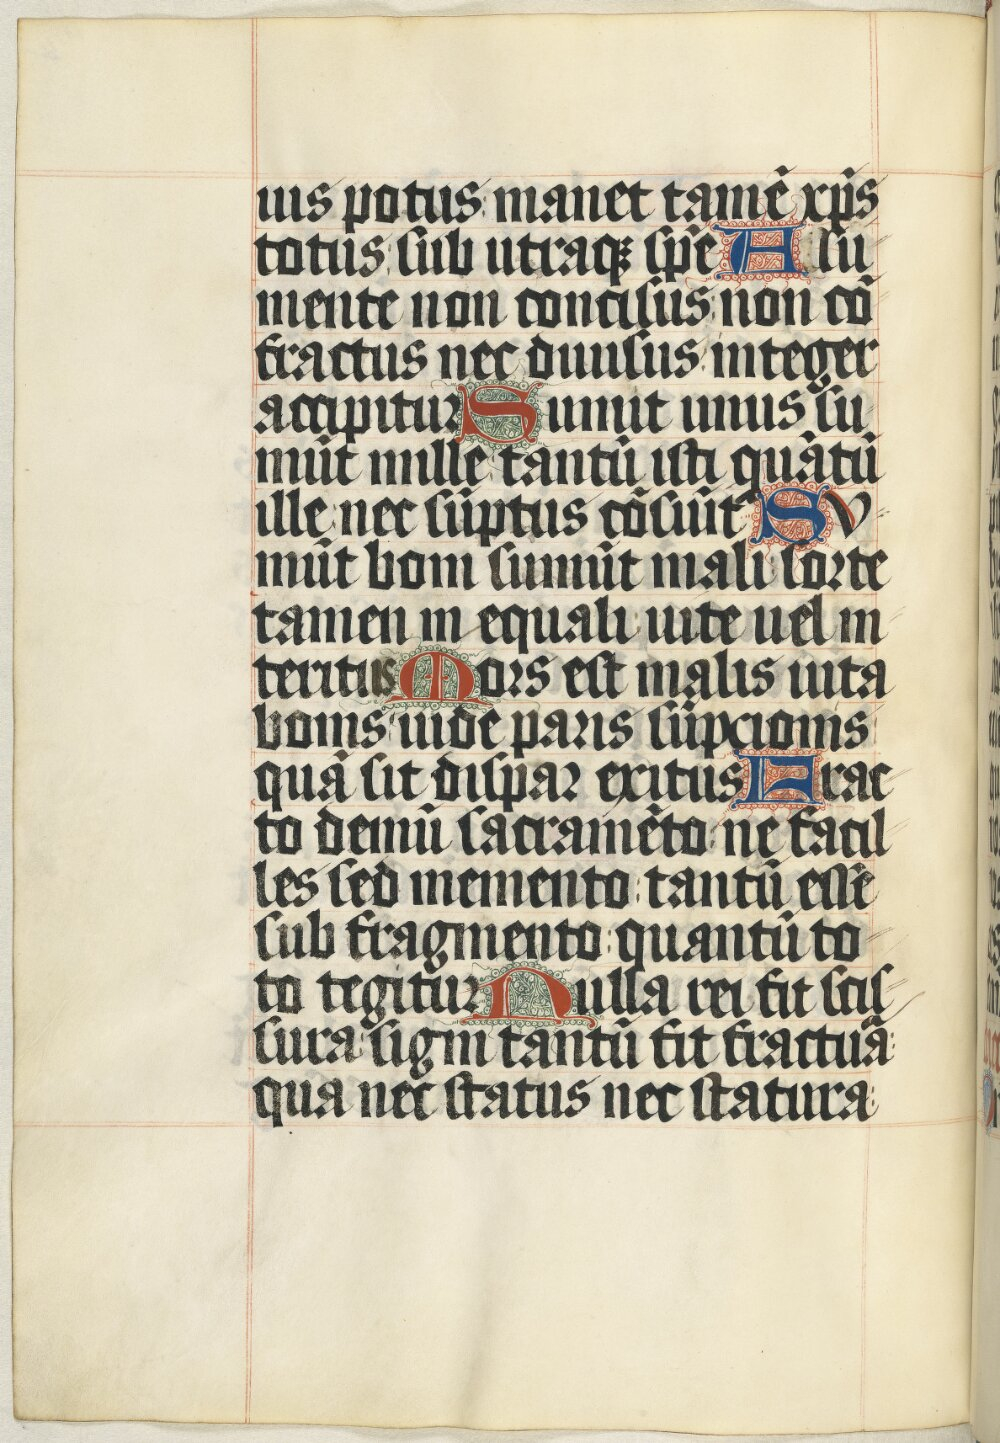 uis potus manet tamē xp̄s
totus sub utraqꝫ spē A su
mente non concisus non cō
fractus nec diuisus integer
accipitur Sumit unus su
mūt mille tantū isti quātū
ille nec sūptus cōsūit Su
mūt boni sumūt mali sorte
tamen in equali uite uel in
teritus Mors est malis uita
bonis uide paris sūpcionis
quā sit dispar exitus Frac
to demū sacramēto ne facil
les sed memento tantū esse
sub fragmento quantū to
to tegitur Nulla rei fit scis
sura signi tantū fit fractuā
qua nec status nec statura